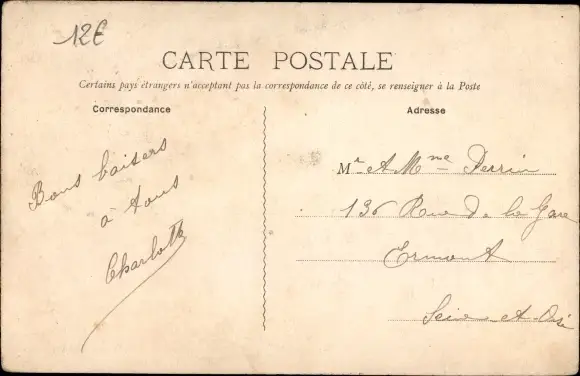 12€
CARTE POSTALE
Certains pays étrangers n'acceptant pas la correspondance de ce côté, se renseigner à la Poste
Correspondance
Bons baisers
à tous
Charlotte
Adresse
Mr et Mme Perrin
136 Rue de la Gare
Ermont
Seine-et-Oise